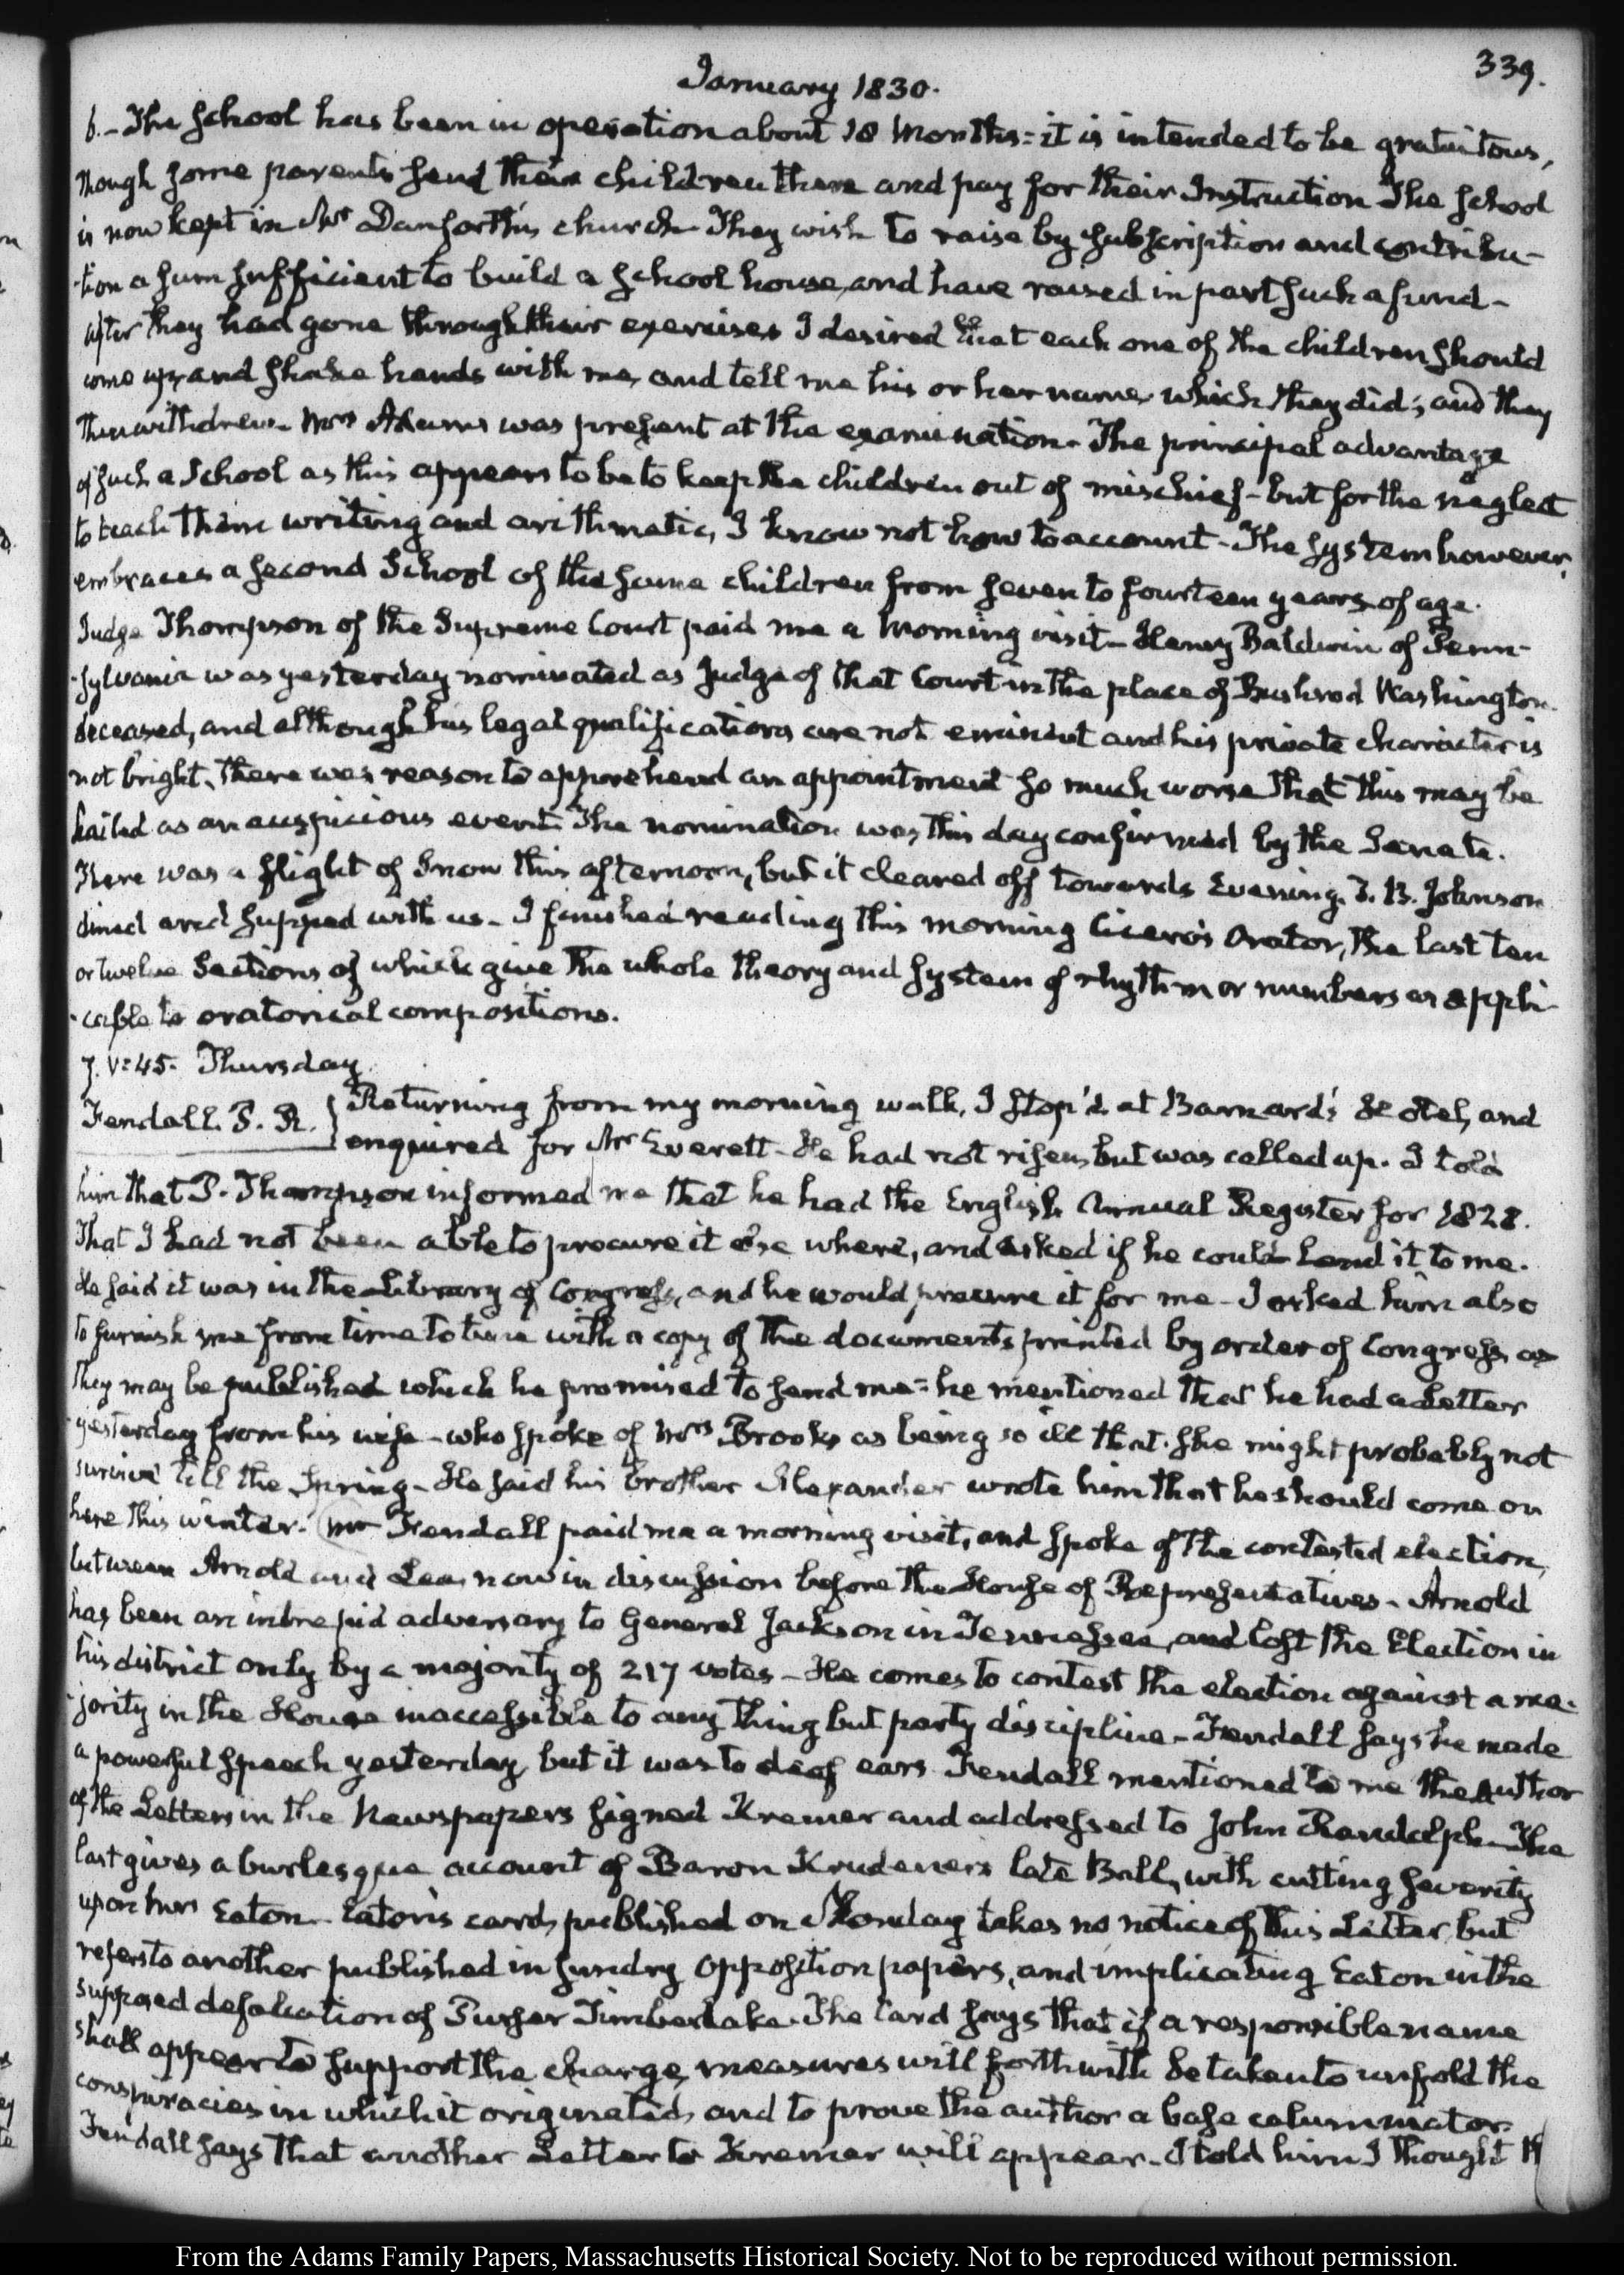 January 1830.
339.
6.- The School has been in operation about 18 Months: it is intended to be gratuitous,
though some parents send their children there and pay for their Instruction The School
is now kept in Mr Danforth's church They wish to raise by subscription and contribu-
-tion a sum sufficient to build a School house, and have raised in part such a fund-
After they had gone through their exercises I desired that each one of the children should
come up, and shake hands with me, and tell me his or her name, which they did; and they
then withdrew. Mrs Adams was present at the examination. The principal advantage
of such a School as this appears to be to keep the children out of mischief- but for the neglect
to teach them writing and arithmatic, I know not how to account- The system however,
embraces a second School of the same children from seven to fourteen years of age.
Judge Thompson of the Supreme Court paid me a morning visit- Henry Baldwin of Penn-
-sylvania was yesterday nominated as Judge of that Court in the place of Bushrod Washington
deceased, and although his legal qualifications are not eminent and his private character is
not bright, there was reason to apprehend an appointment so much worse that this may be
hailed as an auspicious event. The nomination was this day confirmed by the Senate.
There was a flight of Snow this afternoon, but it cleared off towards Evening. T. B. Johnson
dined and supped with us- I finished reading this morning Cicero's Orator, the last ten
or twelve Sections of which give the whole theory and system of rhythm or numbers as appli-
-cable to oratorical compositions.
7. V:45. Thursday
Fendall. P. R. } Returning from my morning walk, I stop'd at Barnard's Hotel, and
enquired for Mr Everett- He had not risen, but was called up. I told
him that P. Thompson informed me that he had the English Annual Register for 1828.
That I had not been able to procure it else where, and asked if he could lend it to me.
He said it was in the Library of Congress, and he would procure it for me- I asked him also
to furnish me from time to time with a copy of the documents printed by order of Congress as
they may be published which he promised to send me: he mentioned that he had a Letter
yesterday from his wife- who spoke of Mrs Brooks as being so ill that she might probably not
survive till the Spring- He said his brother Alexander wrote him that he should come on
here this winter. Mr Fendall paid me a morning visit, and spoke of the contested election,
between Arnold and Lea, now in discussion before the House of Representatives- Arnold
has been an intrepid adversary to General Jackson in Tennessee, and lost the Election in
his district only by a majority of 217 votes- He comes to contest the election against a ma-
-jority in the House inaccessible to any thing but party discipline- Fendall says he made
a powerful speech yesterday, but it was to deaf ears Fendall mentioned to me the Author
of the Letters in the Newspapers signed Kremer and addressed to John Randolph- The
last gives a burlesque account of Baron Krudener's late Ball, with cutting severity
upon Mrs Eaton- Eaton's card, published on Monday takes no notice of this Letter, but
refers to another published in sundry opposition papers, and implicating Eaton in the
supposed defalcation of Purser Timberlake. The Card says that if a responsible name
shall appear to support the charge, measures will forthwith be taken to unfold the
conspiracies in which it originated, and to prove the author a base calumniator.
Fendall says that another Letter to Kremer will appear- I told him I thought
From the Adams Family Papers, Massachusetts Historical Society. Not to be reproduced without permission.